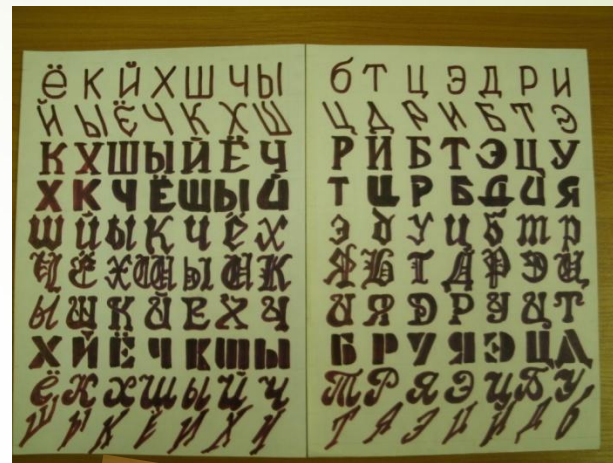 Ё К Й Х Ш Ч Ы
Й Ы Ё Ч К Х Ш
К Х Ш Ы Й Ё Ч
Х К Ч Ё Ш Ы Й
Ш Й Ы К Ч Ё Х
Ч Ё Х Ш Ы Й К
Ы Ш К Й Ё Х Ч
Х Й Ё Ч К Ш Ы
Ё К Х Ш Ы Й Ч
Ш Ы К Ё Й Х Ч
б Т Ц Э Д Р И
Ц Д Р И Б Т Э
Р И Б Т Э Ц У
Т Ц Р Б Д И Я
Э У Ц Б Т Р
Я Т Д Р Э Ц
Я Э Р У Ц Т
Б Р У Я Э Ц Д
Т Р Я Э Ц Б У